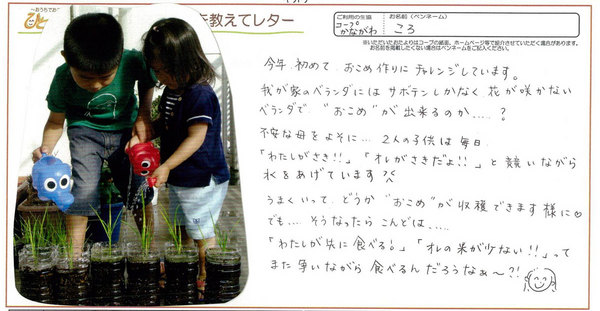 〜おうちでお〜
を教えてレター
ご利用の生協
コープ
かながわ
お名前(ペンネーム)
ころ
※いただいたおたよりはコープの紙面、ホームページ等で紹介させていただく場合があります。
お名前を掲載したくない場合はペンネームをご記入ください。
今年、初めて、おこめ作りにチャレンジしています。
我が家のベランダにはサボテンしかなく花が咲かない
ベランダで"おこめ"が出来るのか....?
不安な母をよそに....2人の子供は毎日、
「わたしがさき!!」「オレがさきだよ!!」と競いながら
水をあげています
うまくいって、どうか"おこめ"が収穫できます様に♡
でも....そうなったらこんどは.....
「わたしが先に食べる!」「オレの米が少ない!!」って
また争いながら食べるんだろうなぁ〜?!